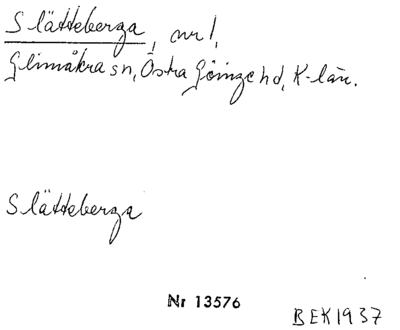 Slätteberga, nr 1,
Glimåkra sn, Östra Göinge hd, K-län.
Slätteberga
Nr 13576
BEK1937